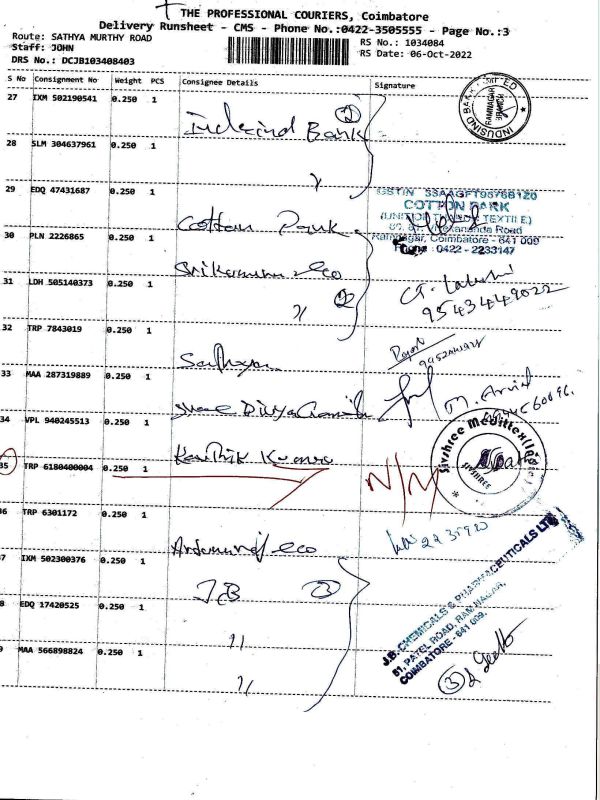 THE PROFESSIONAL COURIERS, Coimbatore
Delivery Runsheet - CMS - Phone No.:0422-3505555 - Page No.:3
Route: SATHYA MURTHY ROAD
RS No.: 1034084
Staff: JOHN
RS Date: 06-Oct-2022
DRS No.: DCJB103408403
S No Consignment No Weight PCS Consignee Details Signature
27 IXM 502190541 0.250 1
Indusind Bank (2)
INDUSIND BANK LIMITED
RAMNAGAR BRANCH
28 SLM 304637961 0.250 1
"
29 EDQ 47431687 0.250 1
Cotton Park
COTTON PARK
Ramnagar, Coimbatore - 641 009
Phone : 0422 - 2233147
30 PLN 2226865 0.250 1
& co
31 LDH 505140373 0.250 1
" (2)
9543449022
32 TRP 7843019 0.250 1
Sathya
33 MAA 287319889 0.250 1
Shree Divya
M. Arvind
34 VPL 940245513 0.250 1
Karthik Kumar
35 TRP 6180400004 0.250 1
N/M
36 TRP 6301172 0.250 1
& co
37 IXM 502300376 0.250 1
J.B (3)
J.B. CHEMICALS & PHARMACEUTICALS LTD
51, PATEL ROAD, RAM NAGAR,
COIMBATORE - 641 009.
8 EDQ 17420525 0.250 1
"
9 MAA 566898824 0.250 1
"
(3)